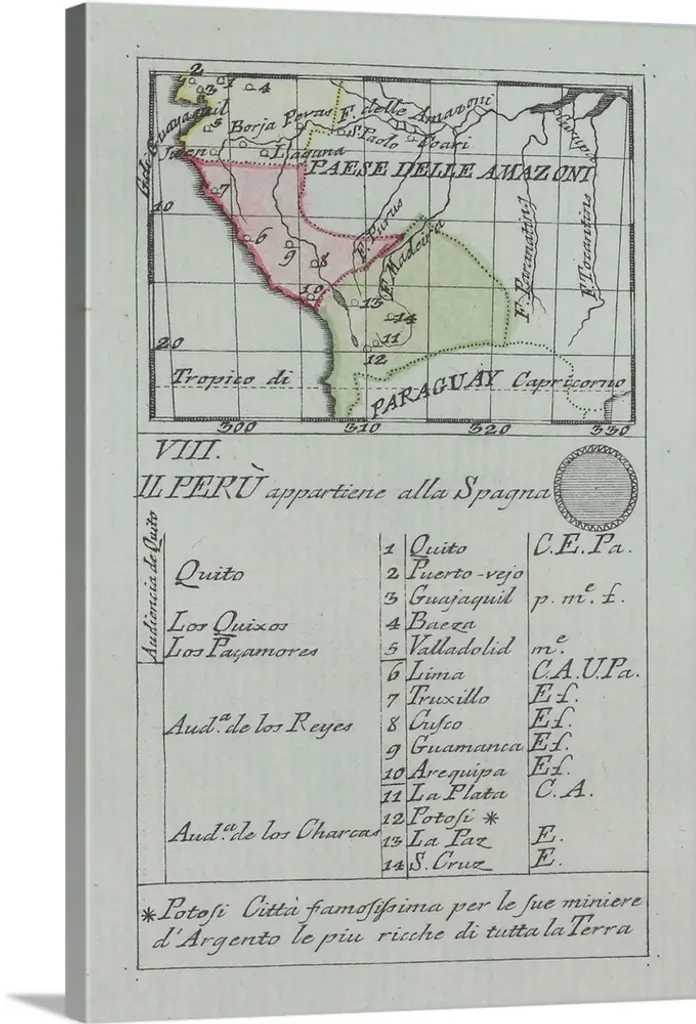 2 1
3 4
G. di Guayaquil
5 Borja Pevas F. delle Amazoni
S. Paolo Coari
Jaen Laguna
PAESE DELLE AMAZONI
7
10
6
9 8
10
F. Purus
F. Madeira
F. Paranating
F. Tocantins
13
14
11
12
20
Tropico di Capricorno
PARAGUAY
300 310 320 330
VIII.
IL PERÙ appartiene alla Spagna
Audiencia de Quito
Quito
1 Quito C. E. Pa.
2 Puerto-vejo
3 Guajaquil p. mᵉ. f.
Los Quixos 4 Baeza
Los Paçamores 5 Valladolid mᵉ.
6 Lima C. A. U. Pa.
7 Truxillo E f.
Audᵃ. de los Reyes 8 Cusco E f.
9 Guamanca E f.
10 Arequipa E f.
11 La Plata C. A.
12 Potosi *
Audᵃ. de los Charcas 13 La Paz E.
14 S. Cruz E.
* Potosi Città famosiſsima per le sue miniere
d'Argento le piu ricche di tutta la Terra